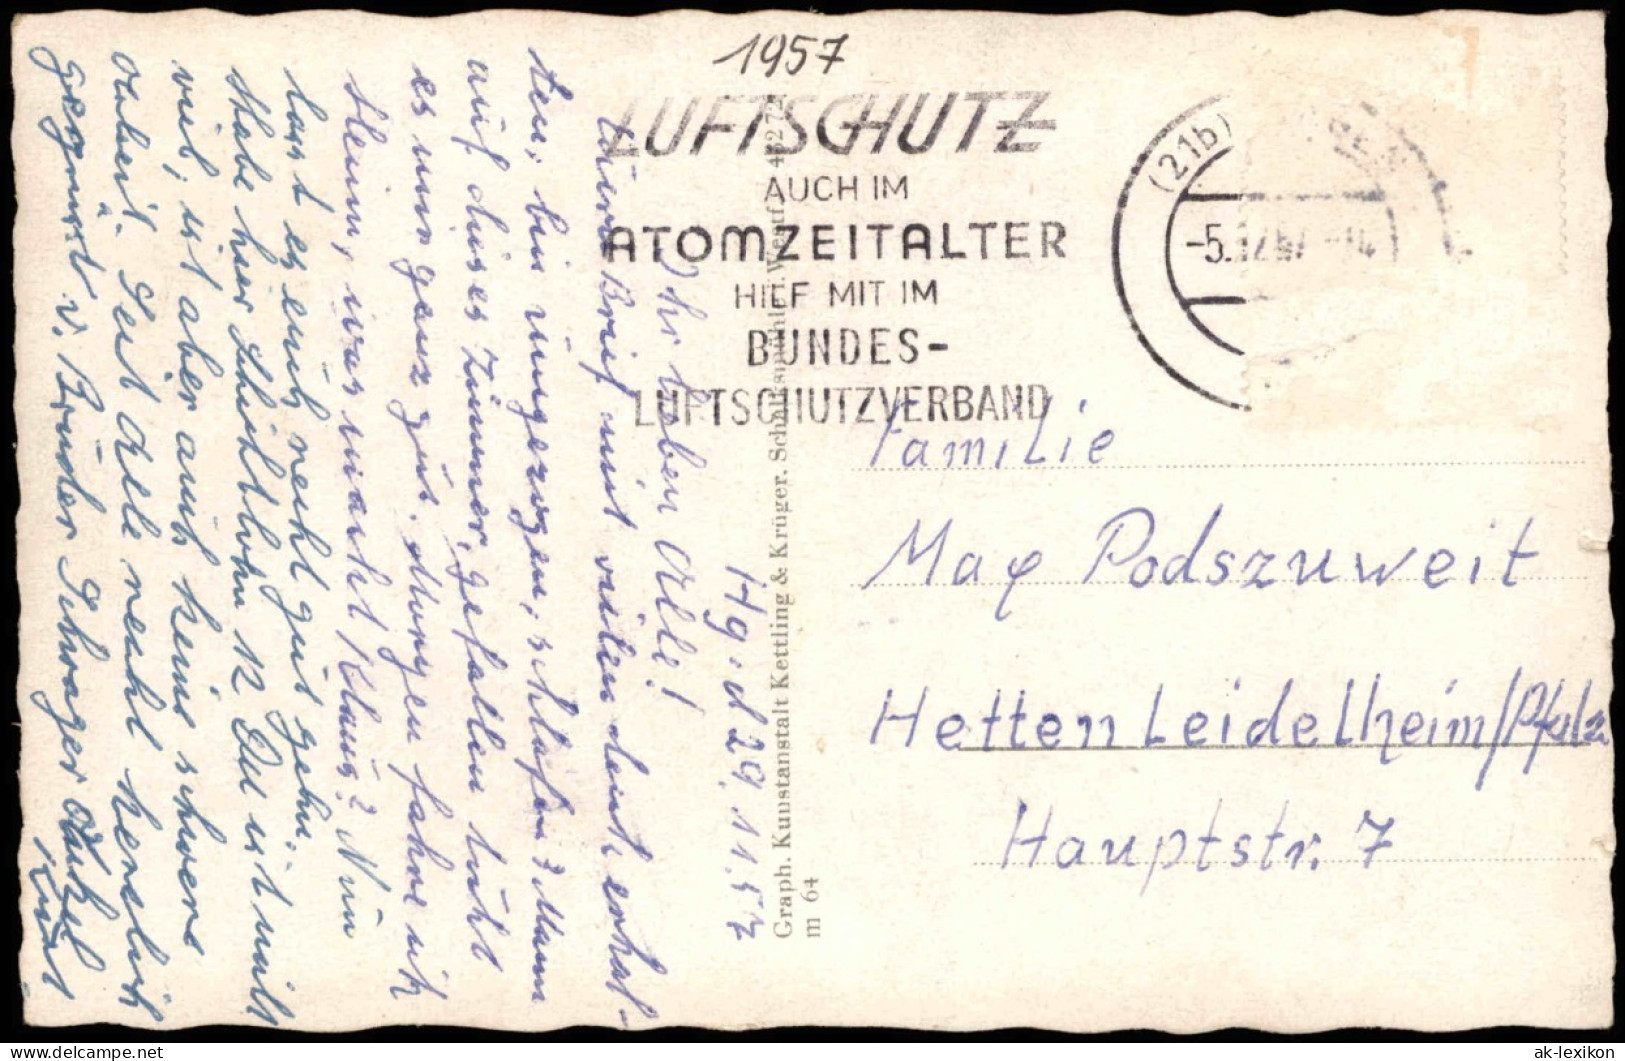 1957
LUFTSCHUTZ
AUCH IM
ATOMZEITALTER
HILF MIT IM
BUNDES-
LUFTSCHUTZVERBAND
(21b)
-5.12.57
Familie
Max Podszuweit
Hettenleidelheim/Pfalz
Hauptstr. 7
Graph. Kunstanstalt Kettling & Krüger. Schalksmühle i. Westf.
m 64
29.11.57
Ihr lieben Alle!
Euren Brief mit vielen dank erhal-
ten, bin umgezogen, schlafen 3 Mann
auf dieses Zimmer, gefallen tuht
es mir ganz gut. Morgen fahre ich
Heim, was macht Klaus? Nun
last es euch recht gut gehn.
Habe hier Schichtlohn 12 Du ist nicht
viel, ist aber auch keine schwere
Arbeit. Seit Alle recht herzlich
gegrüßt v. Bruder Schwager Onkel
Kurt
ak-lexikon